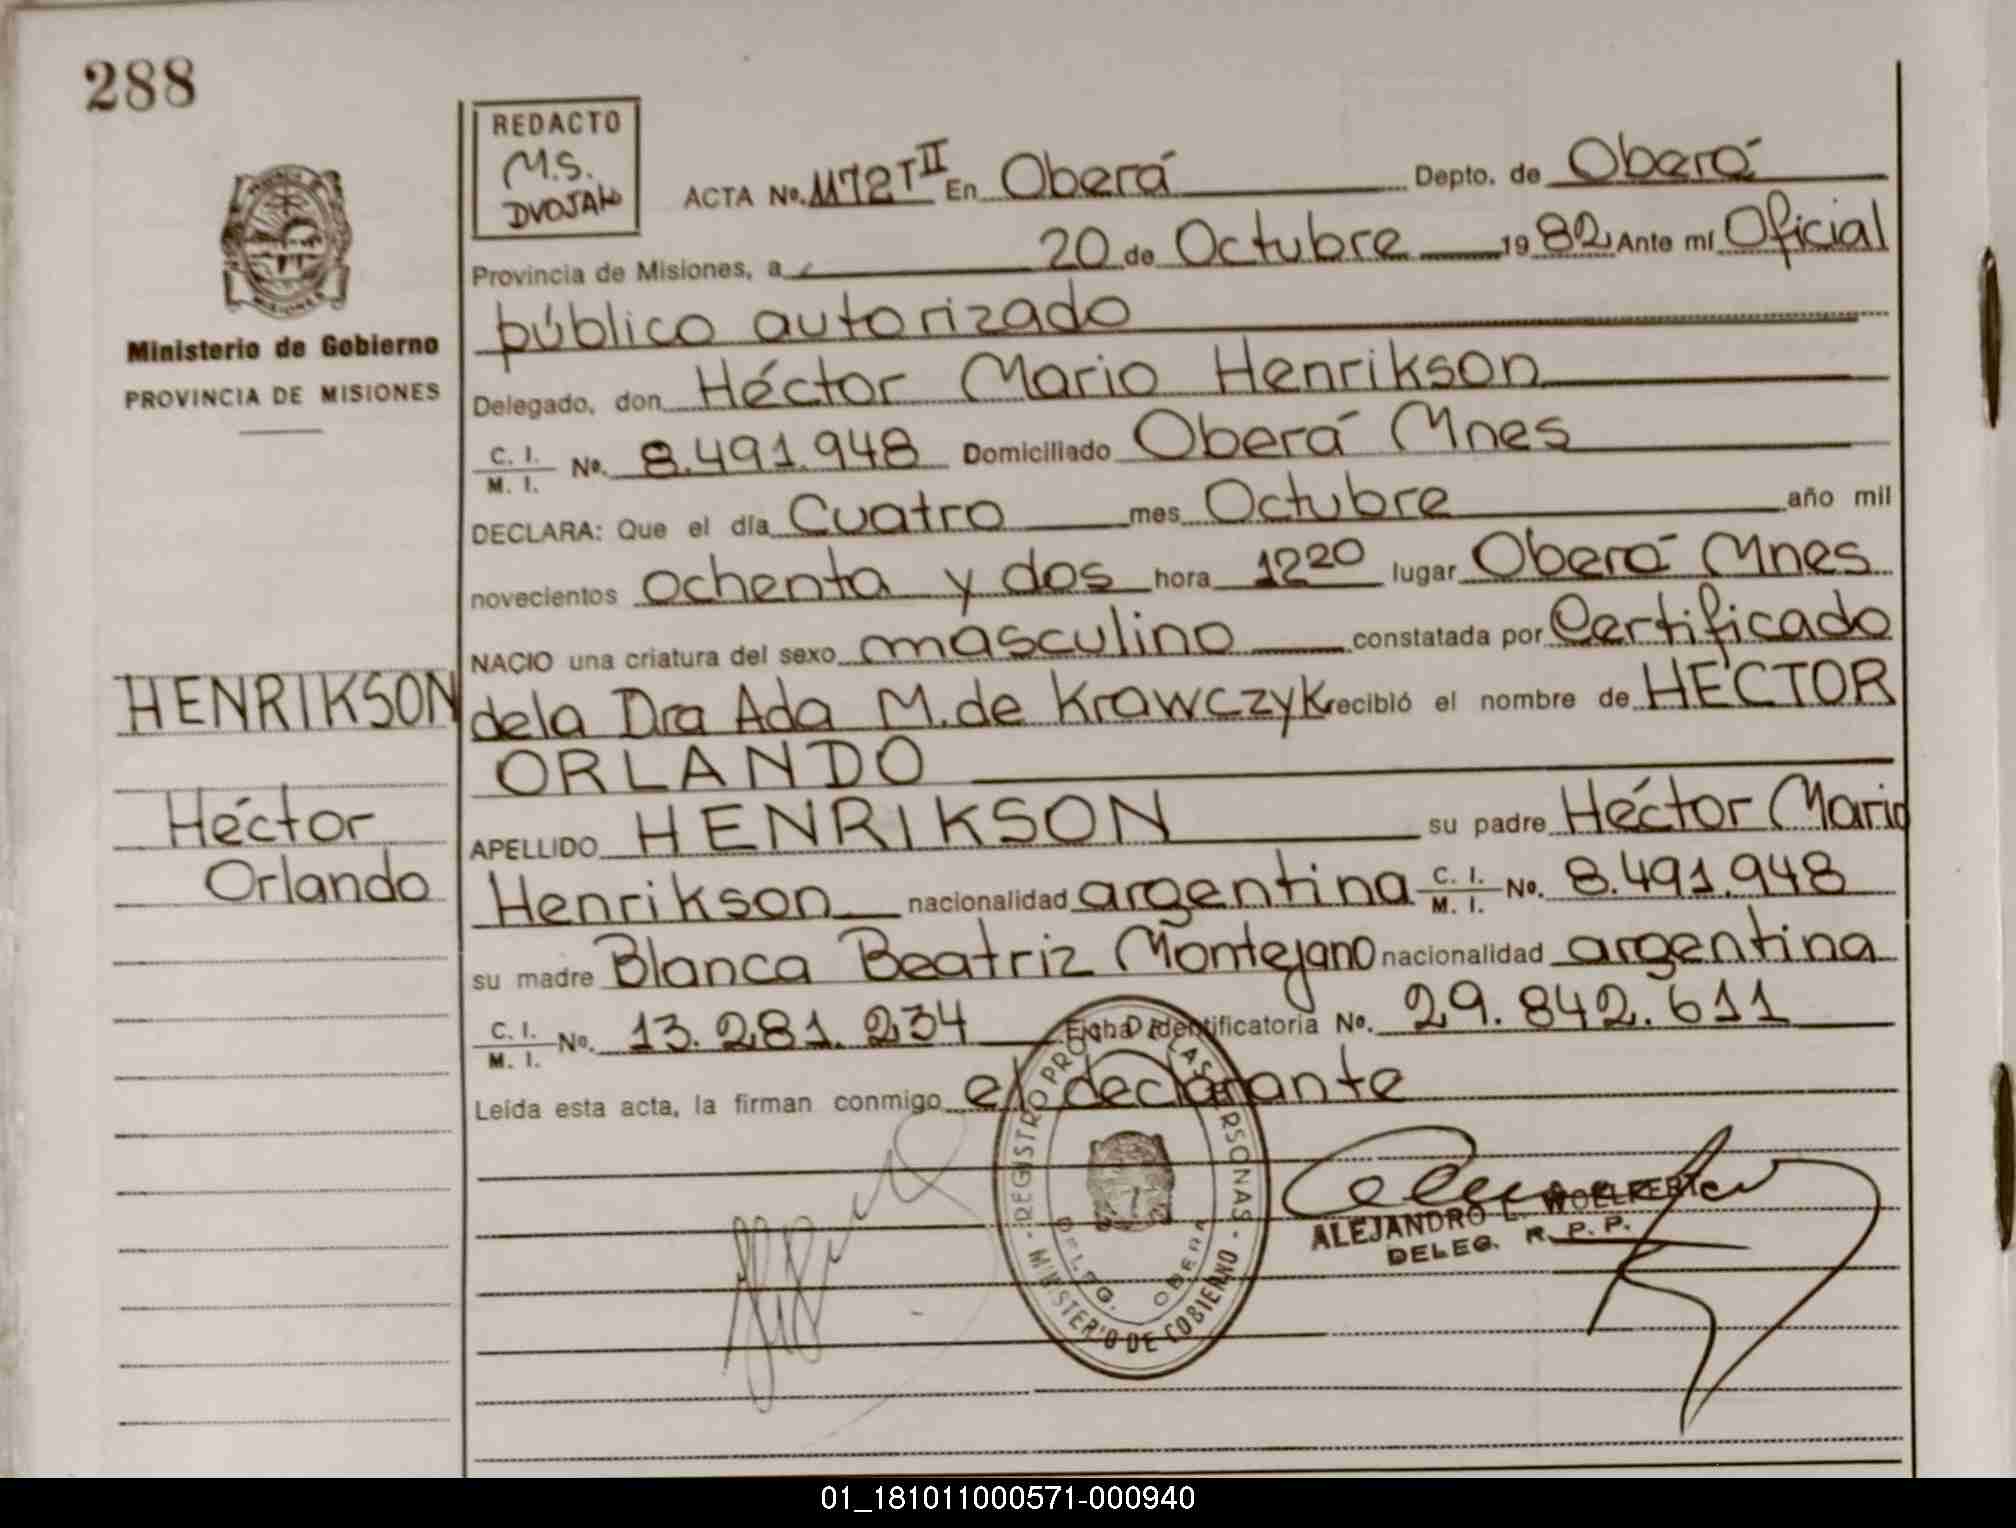 288
REDACTO
M.S.
DVOJAK
ACTA No. 1172 T II En Oberá Depto. de Oberá
Provincia de Misiones, a 20 de Octubre 1982 Ante mí Oficial
público autorizado
Ministerio de Gobierno
PROVINCIA DE MISIONES
Delegado, don Héctor Mario Henrikson
C. I. / M. I. No. 8.491.948 Domiciliado Oberá Mnes
DECLARA: Que el día Cuatro mes Octubre año mil
novecientos ochenta y dos hora 12 20 lugar Oberá Mnes
NACIO una criatura del sexo masculino constatada por Certificado
HENRIKSON
dela Dra Ada M. de Krawczyk recibió el nombre de HÉCTOR
ORLANDO
Héctor
Orlando
APELLIDO HENRIKSON su padre Héctor Mario
Henrikson nacionalidad argentina C. I. / M. I. No. 8.491.948
su madre Blanca Beatriz Montejano nacionalidad argentina
C. I. / M. I. No. 13.281.234 Ficha Identificatoria No. 29.842.611
Leída esta acta, la firman conmigo el declarante
REGISTRO PROV. DE LAS PERSONAS
DELEG. OBERA
MINISTERIO DE GOBIERNO
ALEJANDRO L. WOELFERT
DELEG. R. P. P.
01_181011000571-000940